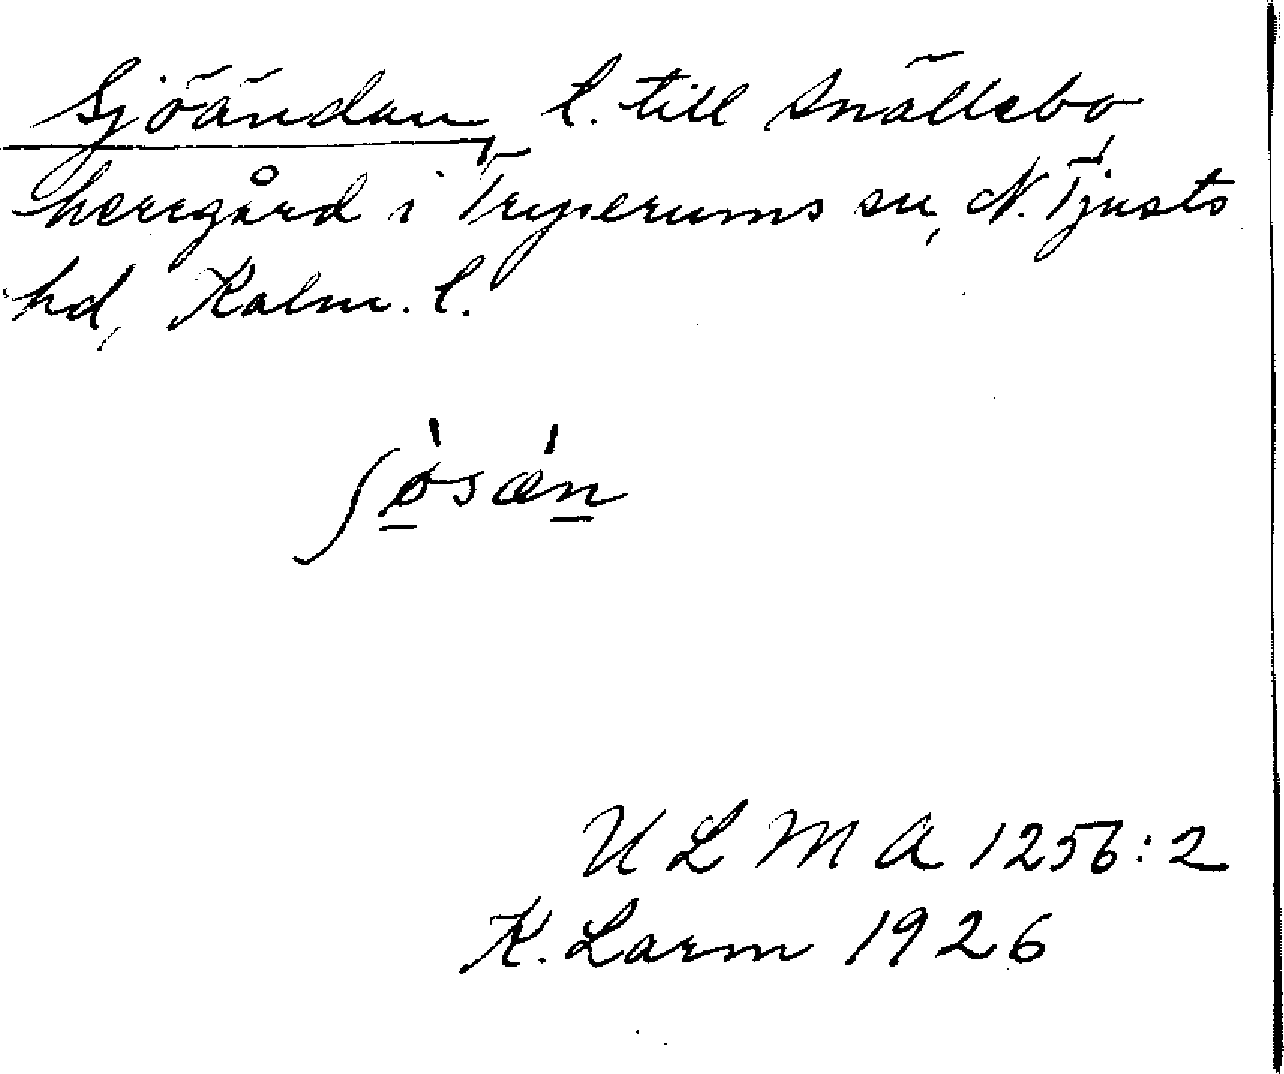 Sjöändan, l. till Snällebo
herrgård i Tryserums sn, N. Tjusts
hd, Kalm. l.
ʃø̱̀sæ̀ṉ
ULMA 1256:2
K. Larm 1926